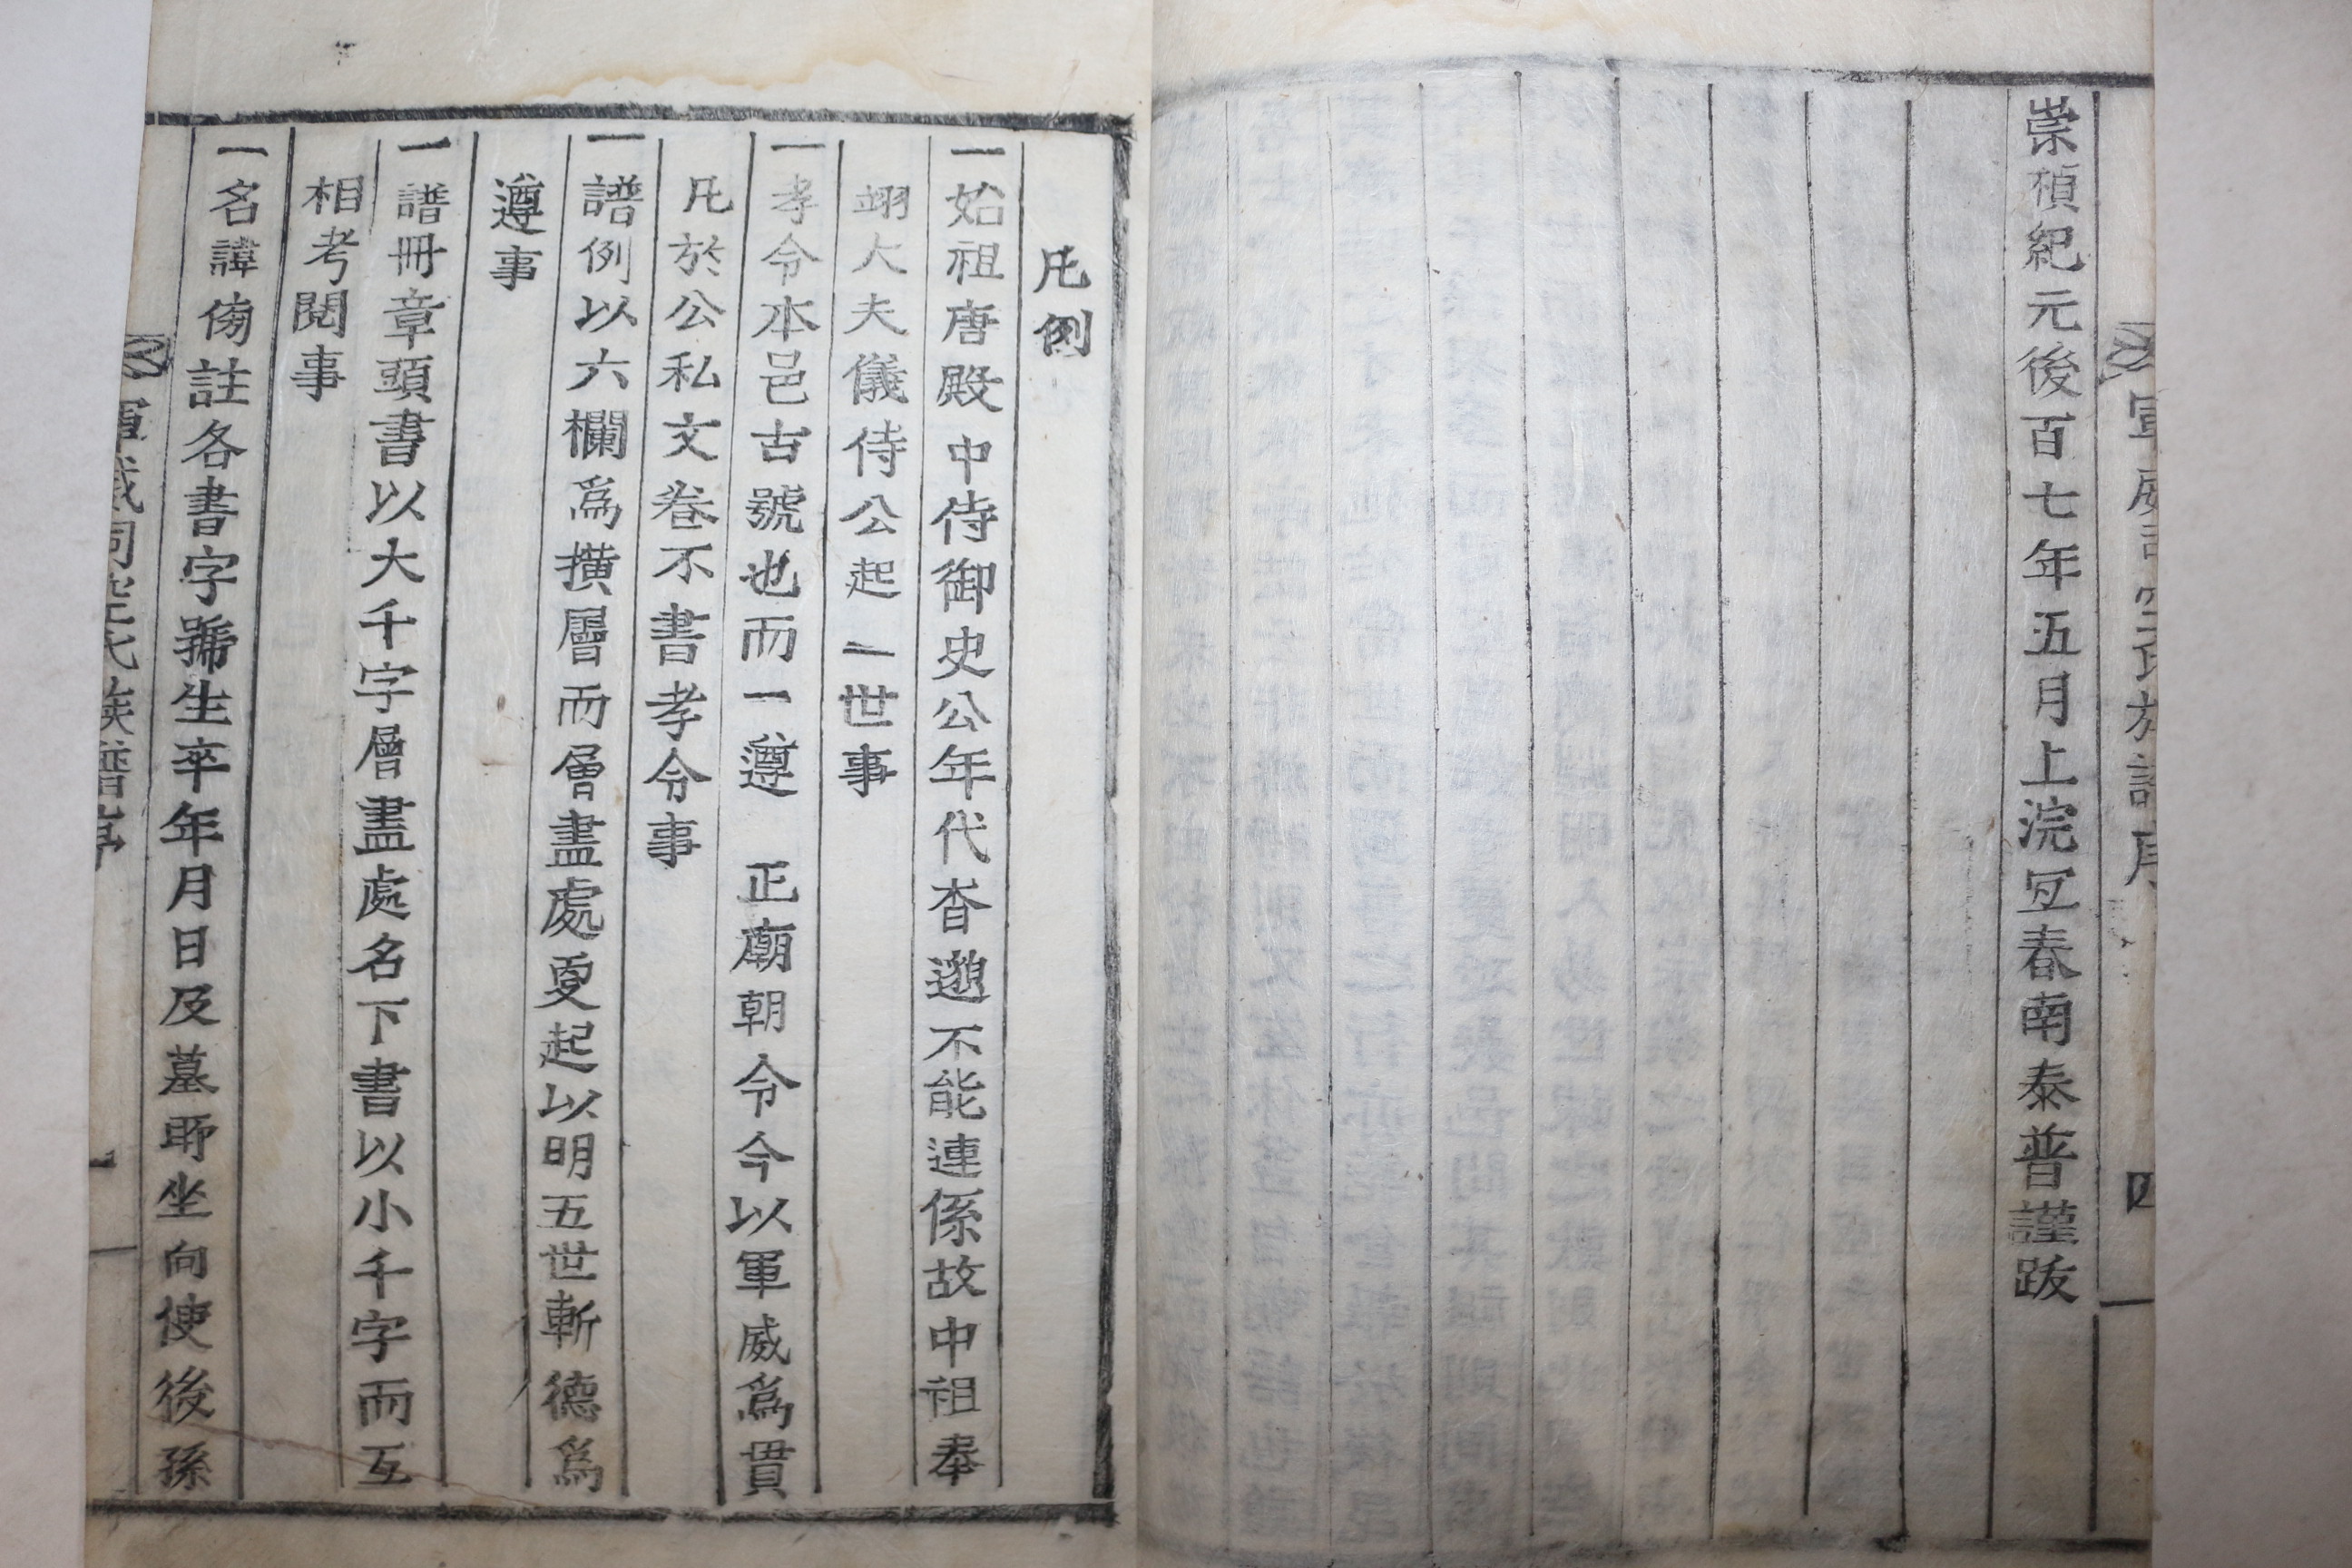 軍威司空氏族譜序
四
崇禎紀元後百七年五月上浣宜春南泰普謹跋
凡例
一始祖唐殿中侍御史公年代杳邈不能連係故中祖奉
翊大夫儀侍公起一世事
一孝令本邑古號也而一遵 正廟朝令今以軍威爲貫
凡於公私文卷不書孝令事
一譜例以六欄爲橫層而層盡處更起以明五世斬德爲
遵事
一譜冊章頭書以大千字層盡處名下書以小千字而互
相考閱事
一名諱傍註各書字號生卒年月日及墓所坐向使後孫
軍威司空氏族譜序